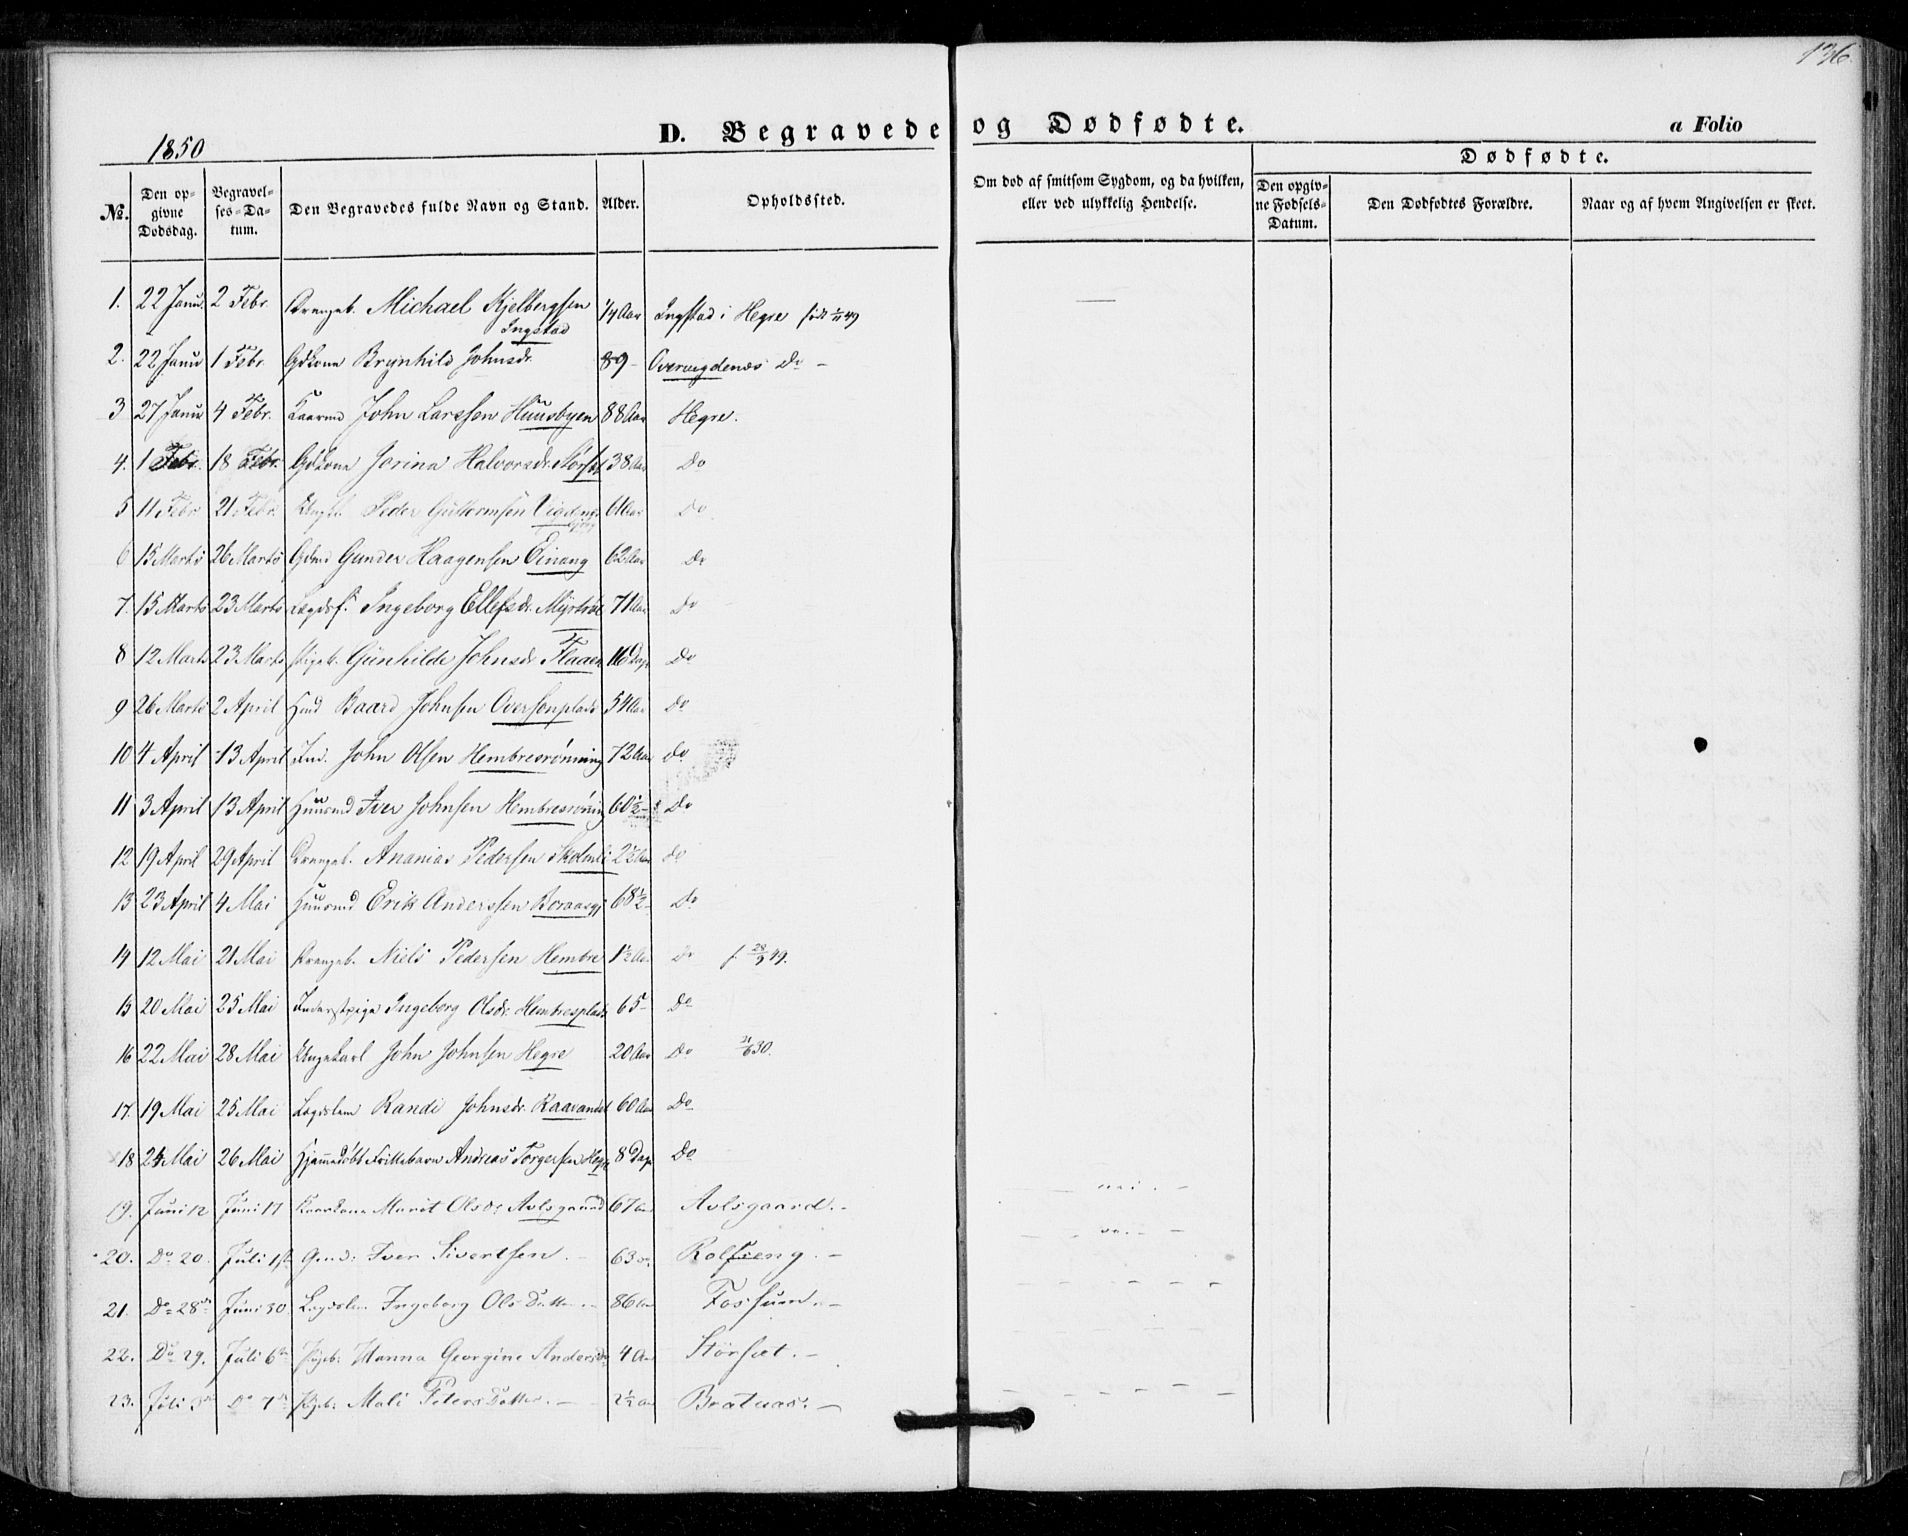 136.
1850
D. Begravede og Dødfødte.
a Folio
No.
Den opgivne Dødsdag.
Begravelses-Datum.
Den Begravedes fulde Navn og Stand.
Alder.
Opholdssted.
Om død af smitsom Sygdom, og da hvilken, eller ved ulykkelig Hendelse.
Dødfødte.
Den opgivne Fødsels-Datum.
Den Dødfødtes Forældre.
Naar og af hvem Angivelsen er skeet.
1. 22 Janu. 2 Febr. Drengeb. Michael Kjelbergsen Ingstad 1/4 Aar Ingstad i Hegre født 49
2. 22 Janu 1 Febr. Gdkone Brynhild Johnsdr. 89 - Overvigdenæs Do -
3 27 Janu 4 Febr. Kaarmd John Larssen Huusbyen 88 Aar Hegre.
4. 1 Febr. 18 Febr. Gdkone Jorina Halvorsdr. Størset 38 Aar Do
5 11 Febr 21 Febr. Ungk. Peder Guttormsen Do
6 15 Marts 26 Marts Gdmd Gunder Haagensen Einang 62 Aar Do
7. 15 Marts 23 Marts Lægdsf. Ingeborg Ellefsdr. 71 Aar Do
8 12 Marts 23 Marts Pigeb. Gunhilde Johnsdr Flaaen 16 Dage Do
9 26 Marts 2 April Hmd Baard Johnsen 54 Aar Do
10 4 April 13 April Ind. John Olsen Hembresrønning 72 Aar Do
11 3 April 13 April Huusmd Iver Johnsen Hembresrøning 60 1/2 - Do
12 19 April 29 April Drengeb. Ananias Pedersen 2 1/2 Aar do
13 23 April 4 Mai Huusmd Erik Anderssen 68 1/2 - Do
14 12 Mai 21 Mai Drengeb. Niels Pedersen Hembre 1 1/2 Aar Do f. 28/9 49.
15 20 Mai 25 Mai Inderstpige Ingeborg Olsdr. Hembresplads 65 - Do
16 22 Mai 28 Mai Ungekarl John Johnsen Hegre 20 Aar Do 21/6 30.
17. 19 Mai 25 Mai Lægdslem Randi Johnsdr. 60 Aar Do
18 24 Mai 26 Mai Hjemmedøbt Andreas Torgersen Hegre 8 Dage Do
19. Juni 12 Juni 17 Kaarkone Marit Olsdr Avlsgaard 67 Aar Avlsgaard. - - nei. -
20. Do 20. Juli 1ste Gmd: Iver Sivertsen. 63 Rolfseng. -
21. Do 28de Juni 30 Lægdslem Ingeborg Ols Datter. - 86 Aar Fossum. -
22. Do 29. Juli 6te Pigeb: Hanna Georgine Andersdr 4 Aar Størset. -
23. Juli Do 7de Pigeb: Mali Peters Datter. - 2 1/2 Aar Brataas. -